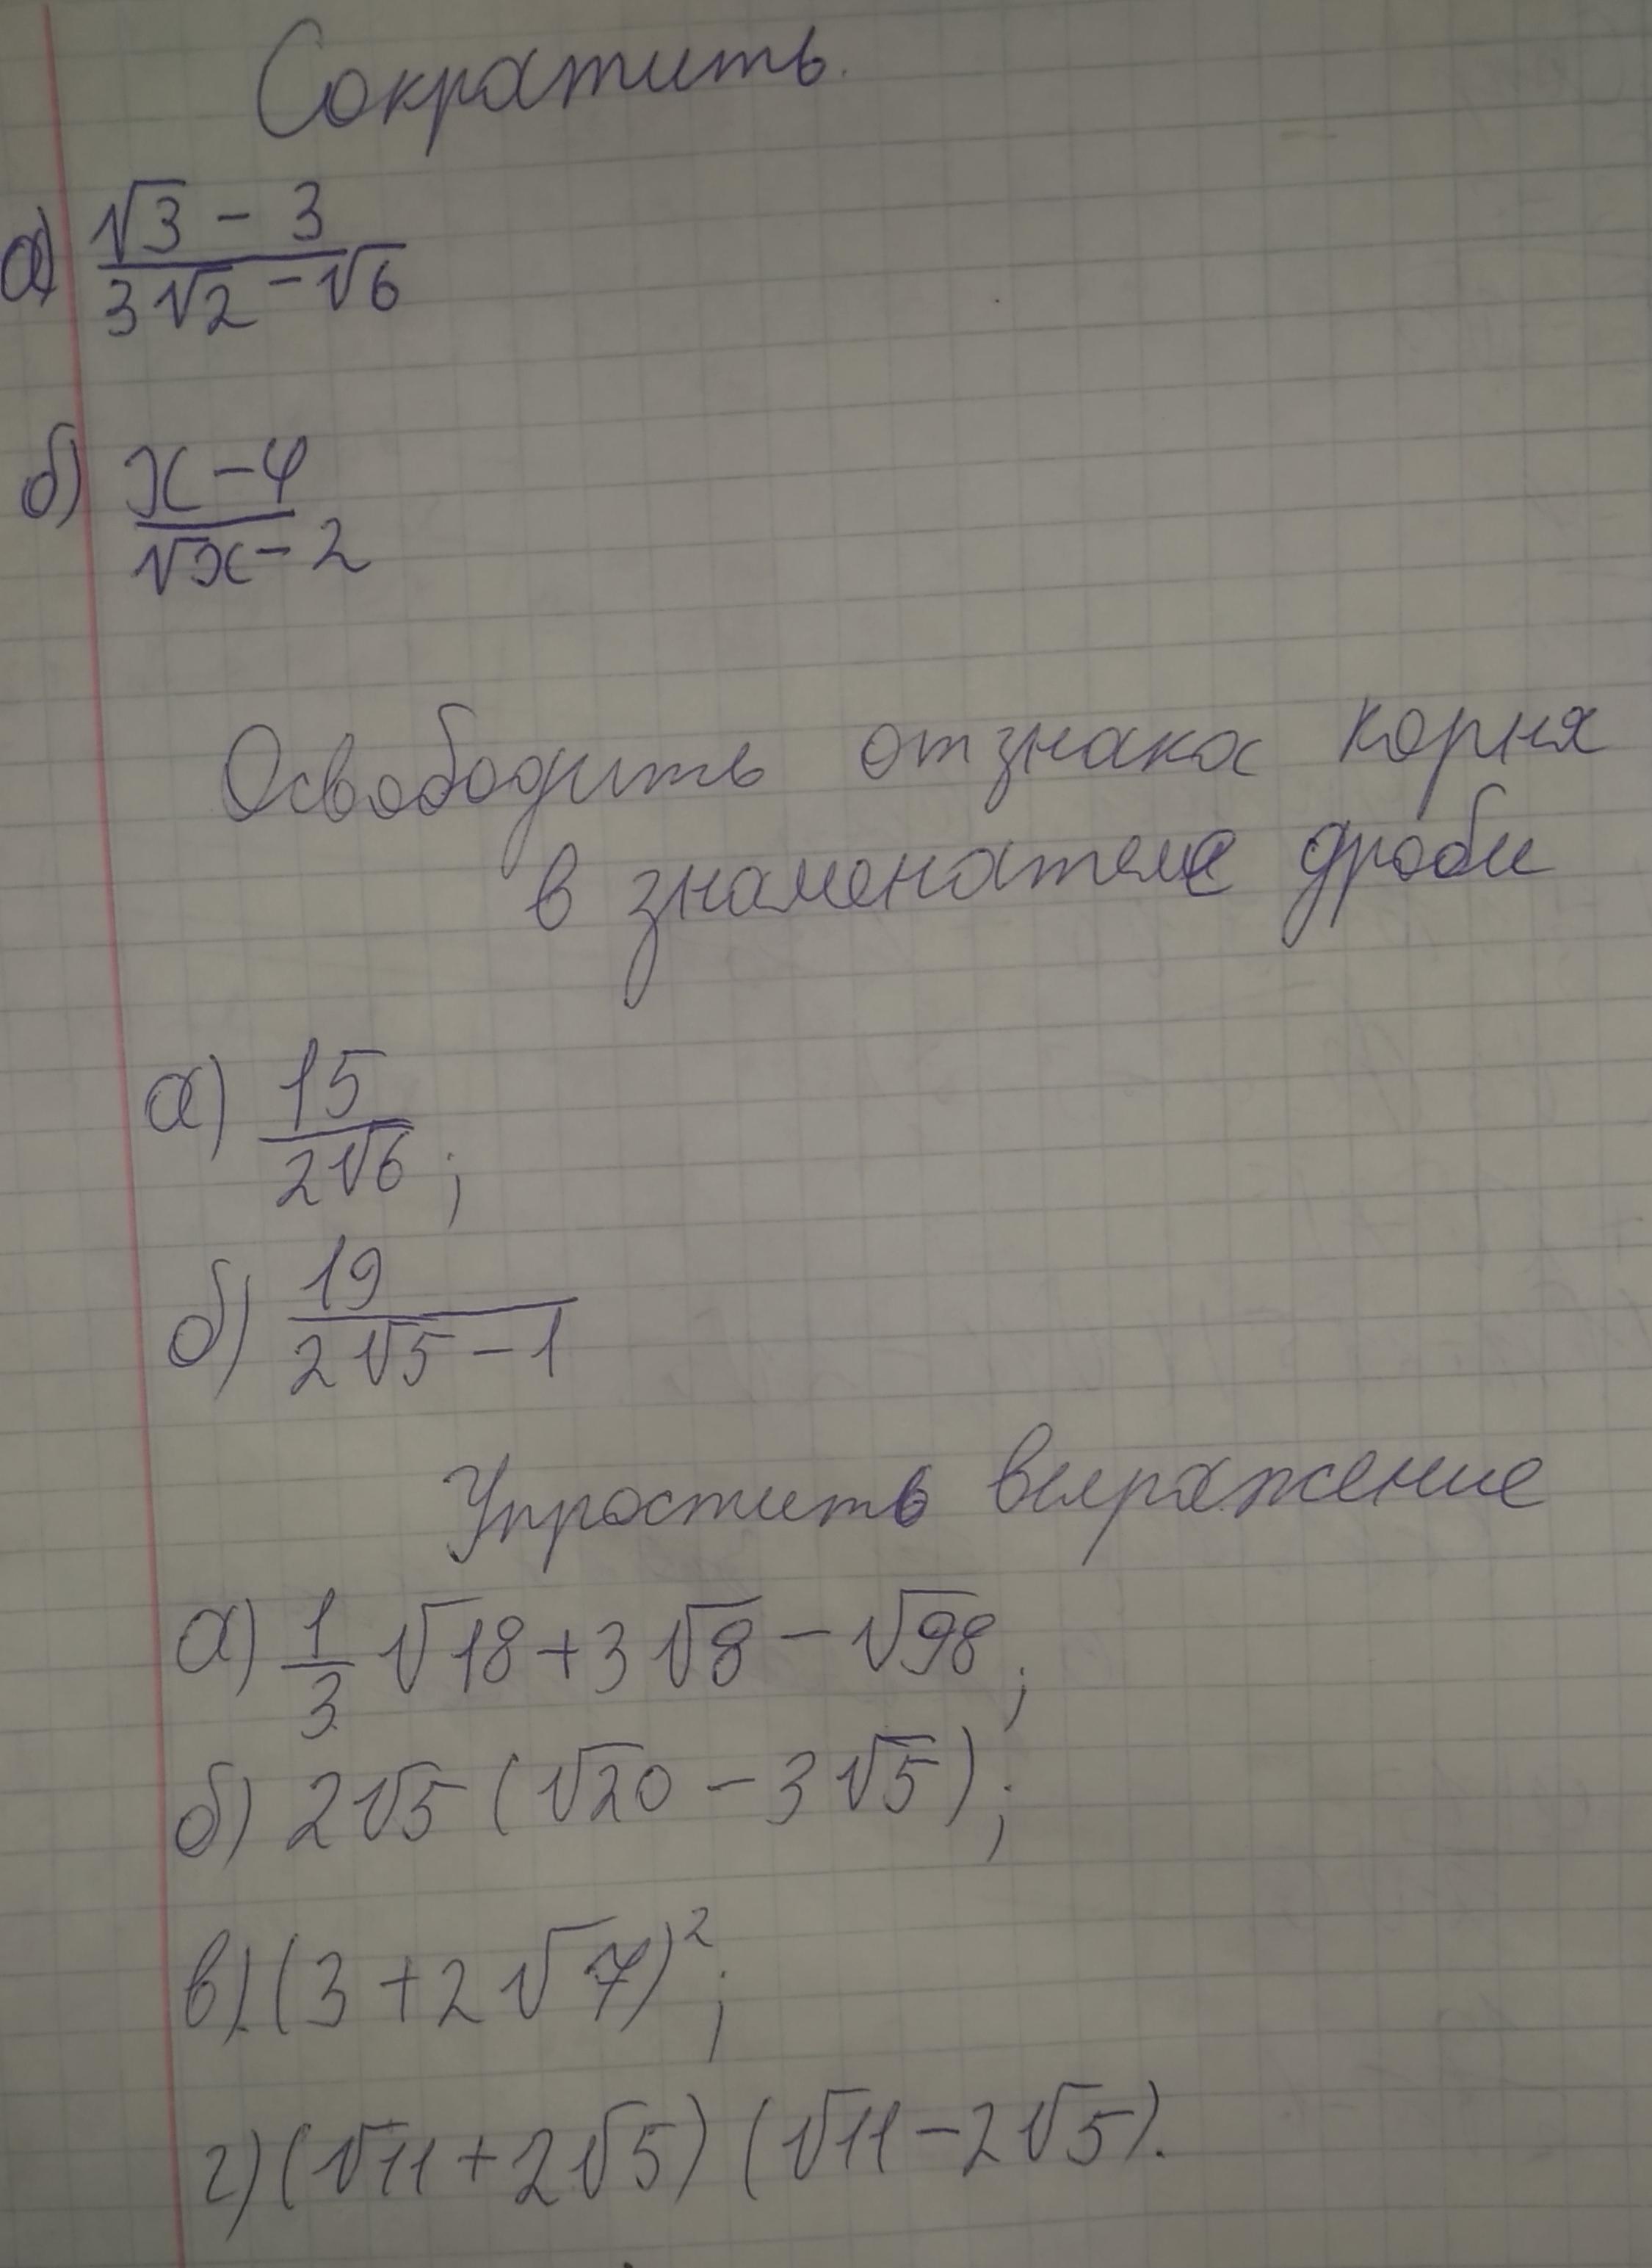 Сократить.
а) (√3 - 3)/(3√2 - √6)
б) (x - 4)/(√x - 2)
Освободить от знака корня
в знаменателе дроби
а) 15/(2√6);
б) 19/(2√5 - 1)
Упростить выражение
а) 1/3 √18 + 3√8 - √98;
б) 2√5 (√20 - 3√5);
в) (3 + 2√7)²;
г) (√11 + 2√5) (√11 - 2√5).